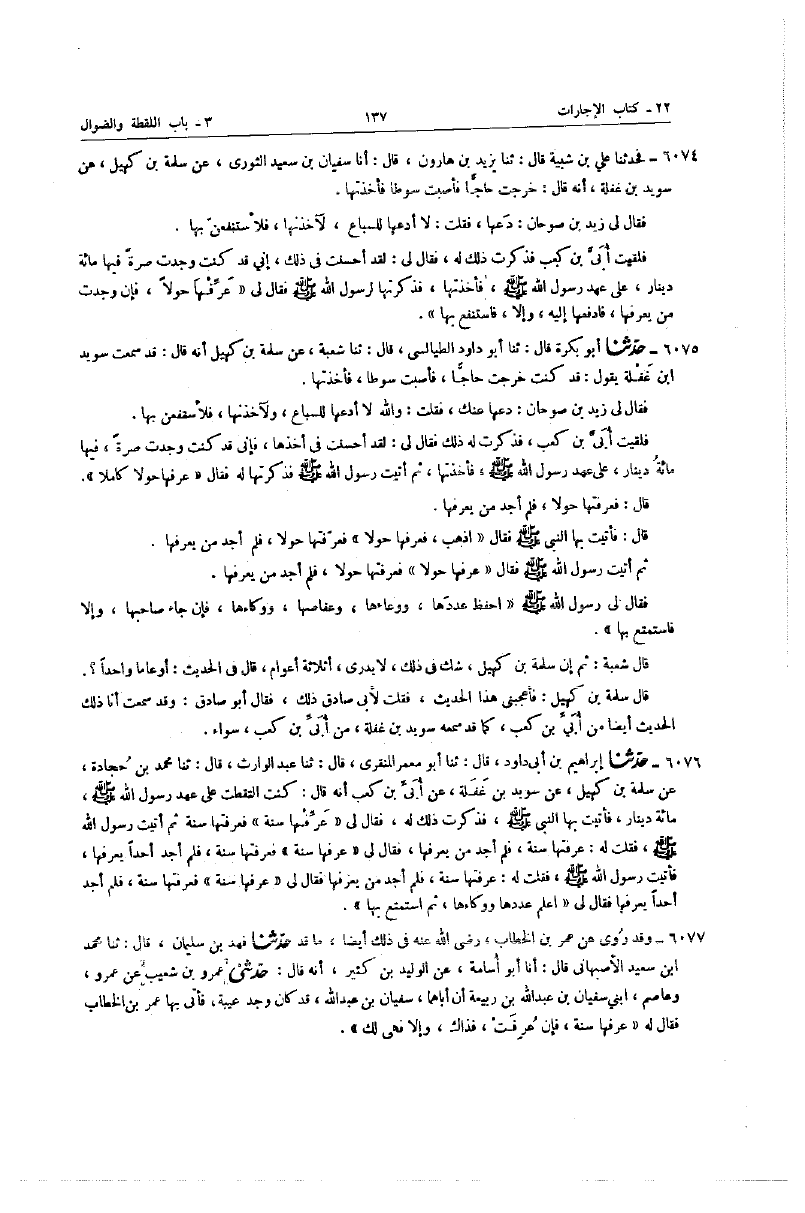 ٢٢ - كتاب الإجارات ١٣٧ ٣ - باب اللقطة والضوال
٦٠٧٤ - فحدثنا علي بن شيبة قال : ثنا يزيد بن هارون ، قال : أنا سفيان بن سعيد الثورى ، عن سلمة بن كهيل ، عن
سويد بن غفلة ، أنه قال : خرجت حاجًّا فأصبت سوطا فأخذتها .
فقال لى زيد بن صوحان : دَعها ، فقلت : لا أدعها للسباع ، لآخذنها ، فلأستنفعنّ بها .
فلقيت أُبَىَّ بن كعب فذكرت ذلك له ، فقال لى : لقد أحسنت فى ذلك ، إني قد كنت وجدت صرةً فيها مائة
دينار ، على عهد رسول الله ﷺ ، فأخذتها ، فذكرتها لرسول الله ﷺ فقال لى « عَرِّفْها حولاً ، فإن وجدت
من يعرفها ، فادفعها إليه ، وإلا ، فاستنفع بها » .
٦٠٧٥ - حدّثنا أبو بكرة قال : ثنا أبو داود الطيالسى ، قال : ثنا شعبة ، عن سلمة بن كهيل أنه قال : قد سمعت سويد
ابن غَفَلة يقول : قد كنت خرجت حاجًّا ، فأصبت سوطا ، فأخذتها .
فقال لى زيد بن صوحان : دعها عنك ، فقلت : والله لا أدعها للسباع ، ولآخذنها ، فلأستنفعن بها .
فلقيت أُبَىَّ بن كعب ، فذكرت له ذلك فقال لى : لقد أحسنت فى أخذها ، فإنى قد كنت وجدت صرةً ، فيها
مائةُ دينار ، على عهد رسول الله ﷺ ، فأخذتها ، ثم أتيت رسول الله ﷺ فذكرتها له فقال « عرفها حولا كاملا ».
قال : فعرفتها حولا ، فلم أجد من يعرفها .
قال : فأتيت بها النبي ﷺ فقال « اذهب ، فعرفها حولا » فعرّفتها حولا ، فلم أجد من يعرفها .
ثم أتيت رسول الله ﷺ فقال « عرفها حولا » فعرفتها حولا ، فلم أجد من يعرفها .
فقال لى رسول الله ﷺ « احفظ عددَها ، ووعاءها ، وعفاصها ، ووكاءها ، فإن جاء صاحبها ، وإلا
فاستمتع بها » .
قال شعبة : ثم إن سلمة بن كهيل ، شك فى ذلك ، لايدرى ، أثلاثة أعوام ، قال فى الحديث : أوعاما واحداً ؟.
قال سلمة بن كهيل : فأعجبنى هذا الحديث ، فقلت لأبى صادق ذلك ، فقال أبو صادق : وقد سمعت أنا ذلك
الحديث أيضا من أُبَيِّ بن كعب ، كما قد سمعه سويد بن غفلة ، من أُبَيِّ بن كعب ، سواء .
٦٠٧٦ - حدّثنا إبراهيم بن أبى داود ، قال : ثنا أبو معمر المنقرى ، قال : ثنا عبد الوارث ، قال : ثنا محمد بن جُحادة ،
عن سلمة بن كهيل ، عن سويد بن غَفَلة ، عن أُبَىِّ بن كعب أنه قال : كنت التقطت على عهد رسول الله ﷺ ،
مائة دينار ، فأتيت بها النبي ﷺ ، فذكرت ذلك له ، فقال لى « عَرِّفْها سنة » فعرفتها سنة ثم أتيت رسول الله
ﷺ ، فقلت له : عرفتها سنة ، فلم أجد من يعرفها ، فقال لى « عرفها سنة » فعرفتها سنة ، فلم أجد أحداً يعرفها ،
فأتيت رسول الله ﷺ ، فقلت له : عرفتها سنة ، فلم أجد من يعرفها فقال لى « عرفها سنة » فعرفتها سنة ، فلم أجد
أحداً يعرفها فقال لى « اعلم عددها ووكاءها ، ثم استمتع بها » .
٦٠٧٧ - وقد رُوى عن عمر بن الخطاب ، رضى الله عنه فى ذلك أيضا ، ما قد حدّثنا فهد بن سليمان ، قال : ثنا محمد
ابن سعيد الأصبهانى قال : أنا أبو أسامة ، عن الوليد بن كثير ، أنه قال : حدّثنى عمرو بن شعيب عن عمرو ،
وعاصم ، ابني سفيان بن عبدالله بن ربيعة أن أباهما ، سفيان بن عبدالله ، قد كان وجد عيبة ، فأتى بها عمر بن الخطاب
فقال له « عرفها سنة ، فإن عُرِفَتْ ، فذاك ، وإلا فهى لك » .